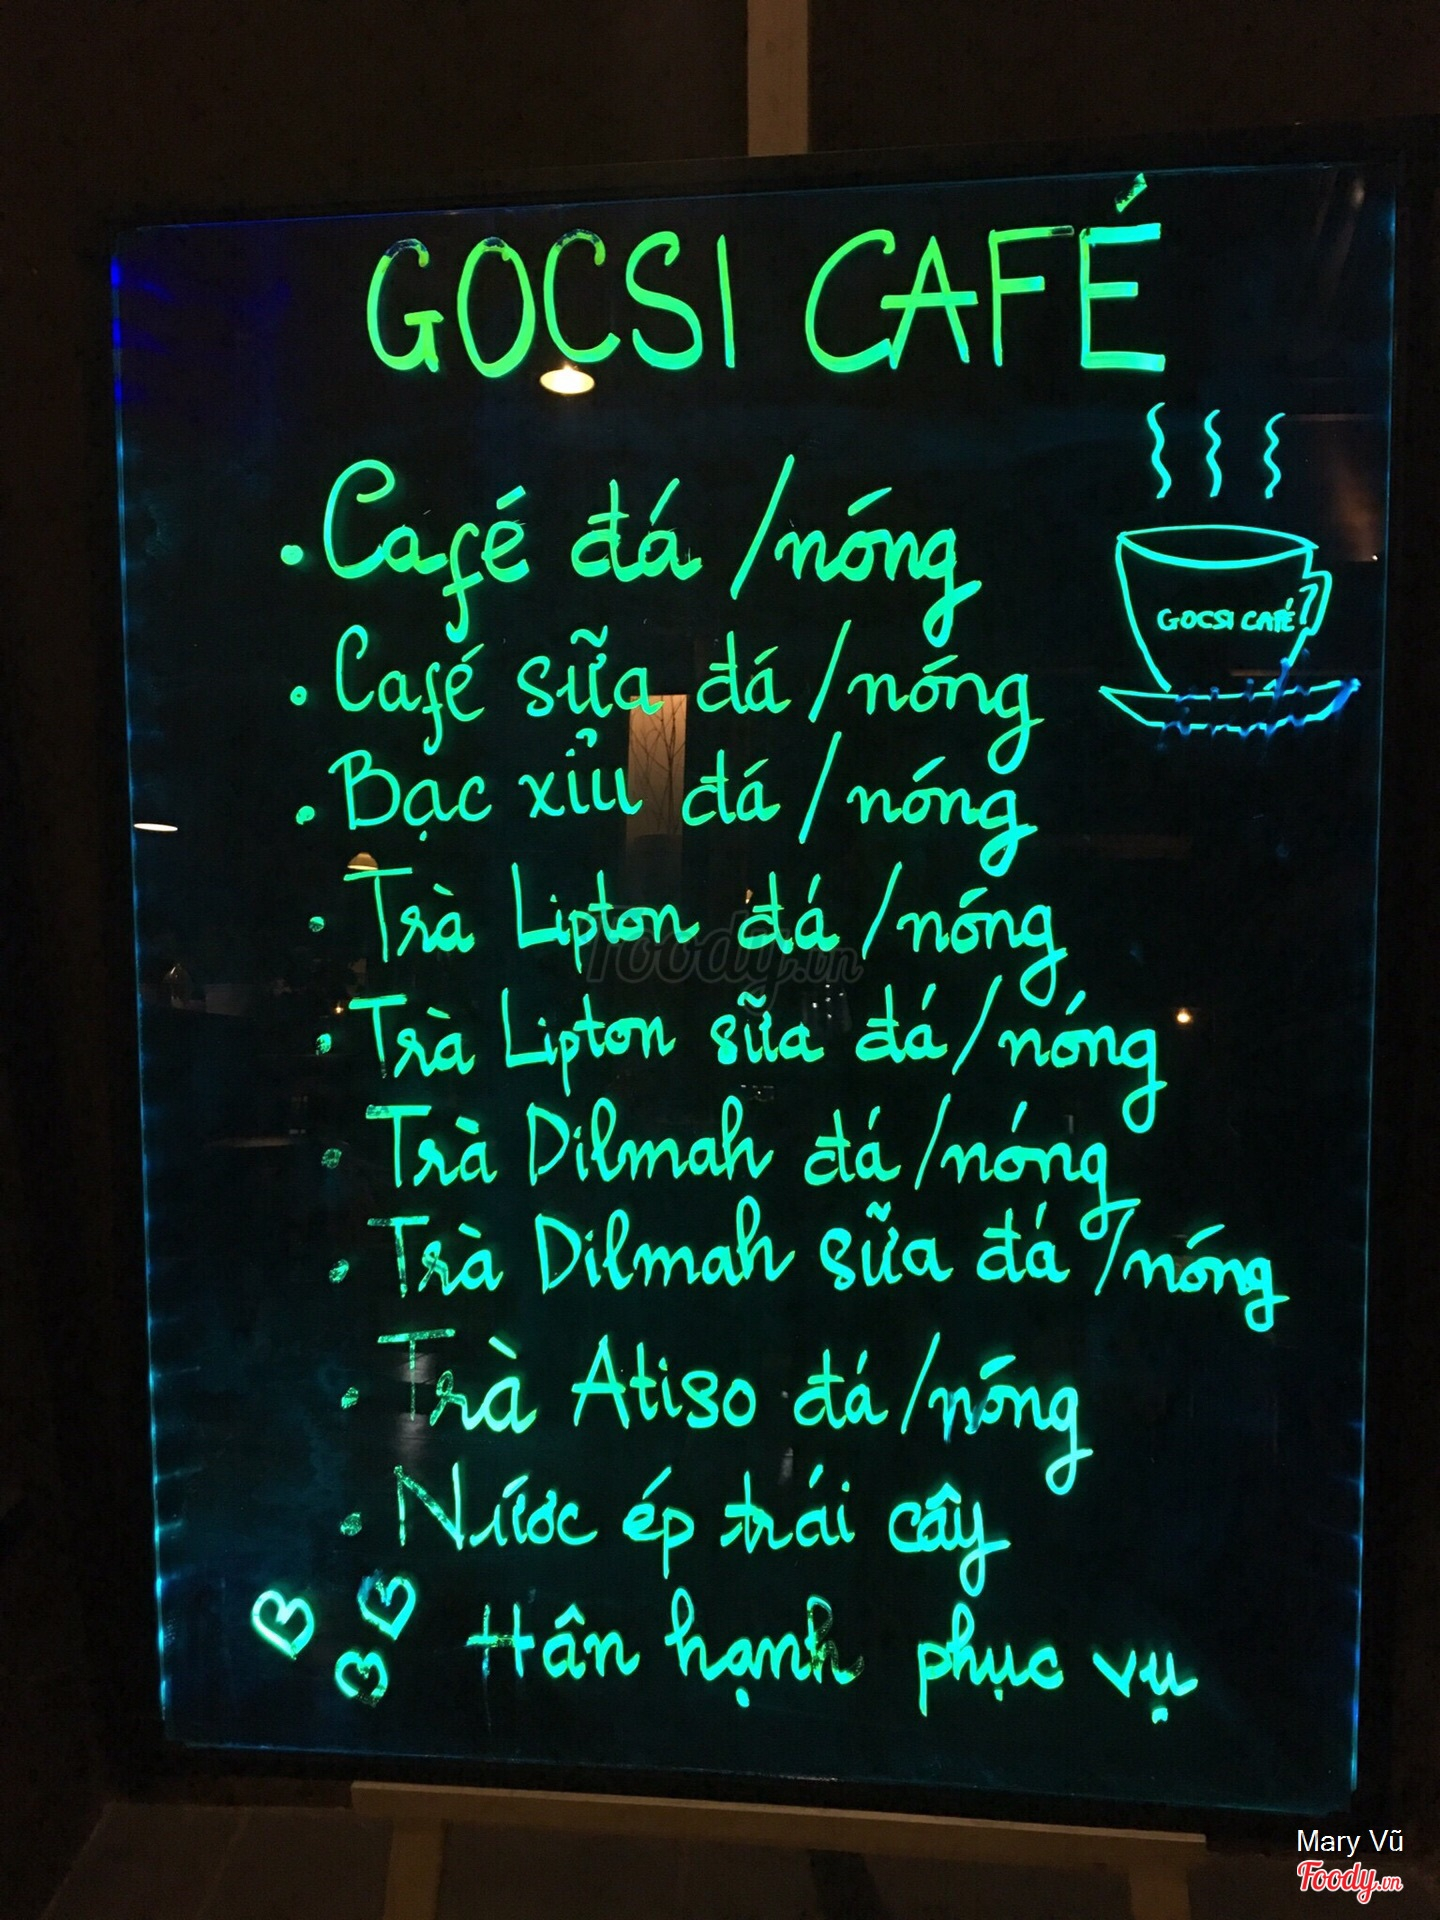 GOCSI CAFÉ
• Café đá / nóng
GOCSI CAFÉ
• Café sữa đá / nóng
• Bạc xỉu đá / nóng
• Trà Lipton đá / nóng
Foody.vn
• Trà Lipton sữa đá / nóng
• Trà Dilmah đá / nóng
• Trà Dilmah sữa đá / nóng
• Trà Atiso đá / nóng
• Nước ép trái cây
Hân hạnh phục vụ
Mary Vũ
Foody.vn